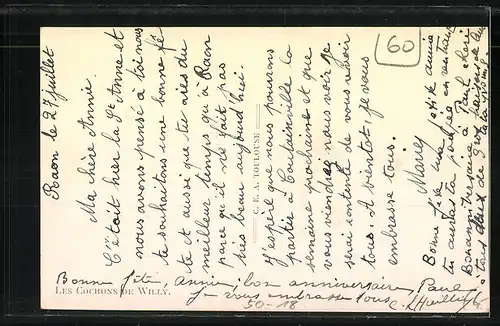 Raon le 27 juillet
Ma chère Annie.
C'était hier la Ste Anne et
nous avons pensé à toi nous
te souhaitons une bonne fê
te et aussi que tu aies du
meilleur temps qu'à Raon
parce qu'il ne fait pas
très beau aujourd'hui.
J'espère que nous pourrons
partir à Coulainville la
semaine prochaine et que
vous viendrez nous voir je
serai contente de vous revoir
tous. A bientôt, je vous
embrasse tous.
Marie
60
Bonne fête ma petite Annie
tu auras ta poupée en
Bon anniversaire à Paul chéri
tous deux de gros baisers de
C. E. A. TOULOUSE
Bonne fête, Annie, bon anniversaire, Paul
LES COCHONS DE WILLY.
Je vous embrasse tous
50-18